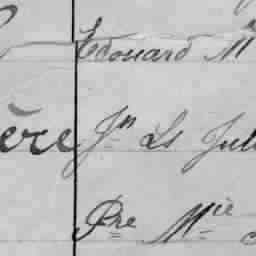 Edouard M
ère Jn Ls Jul
Pre Mie